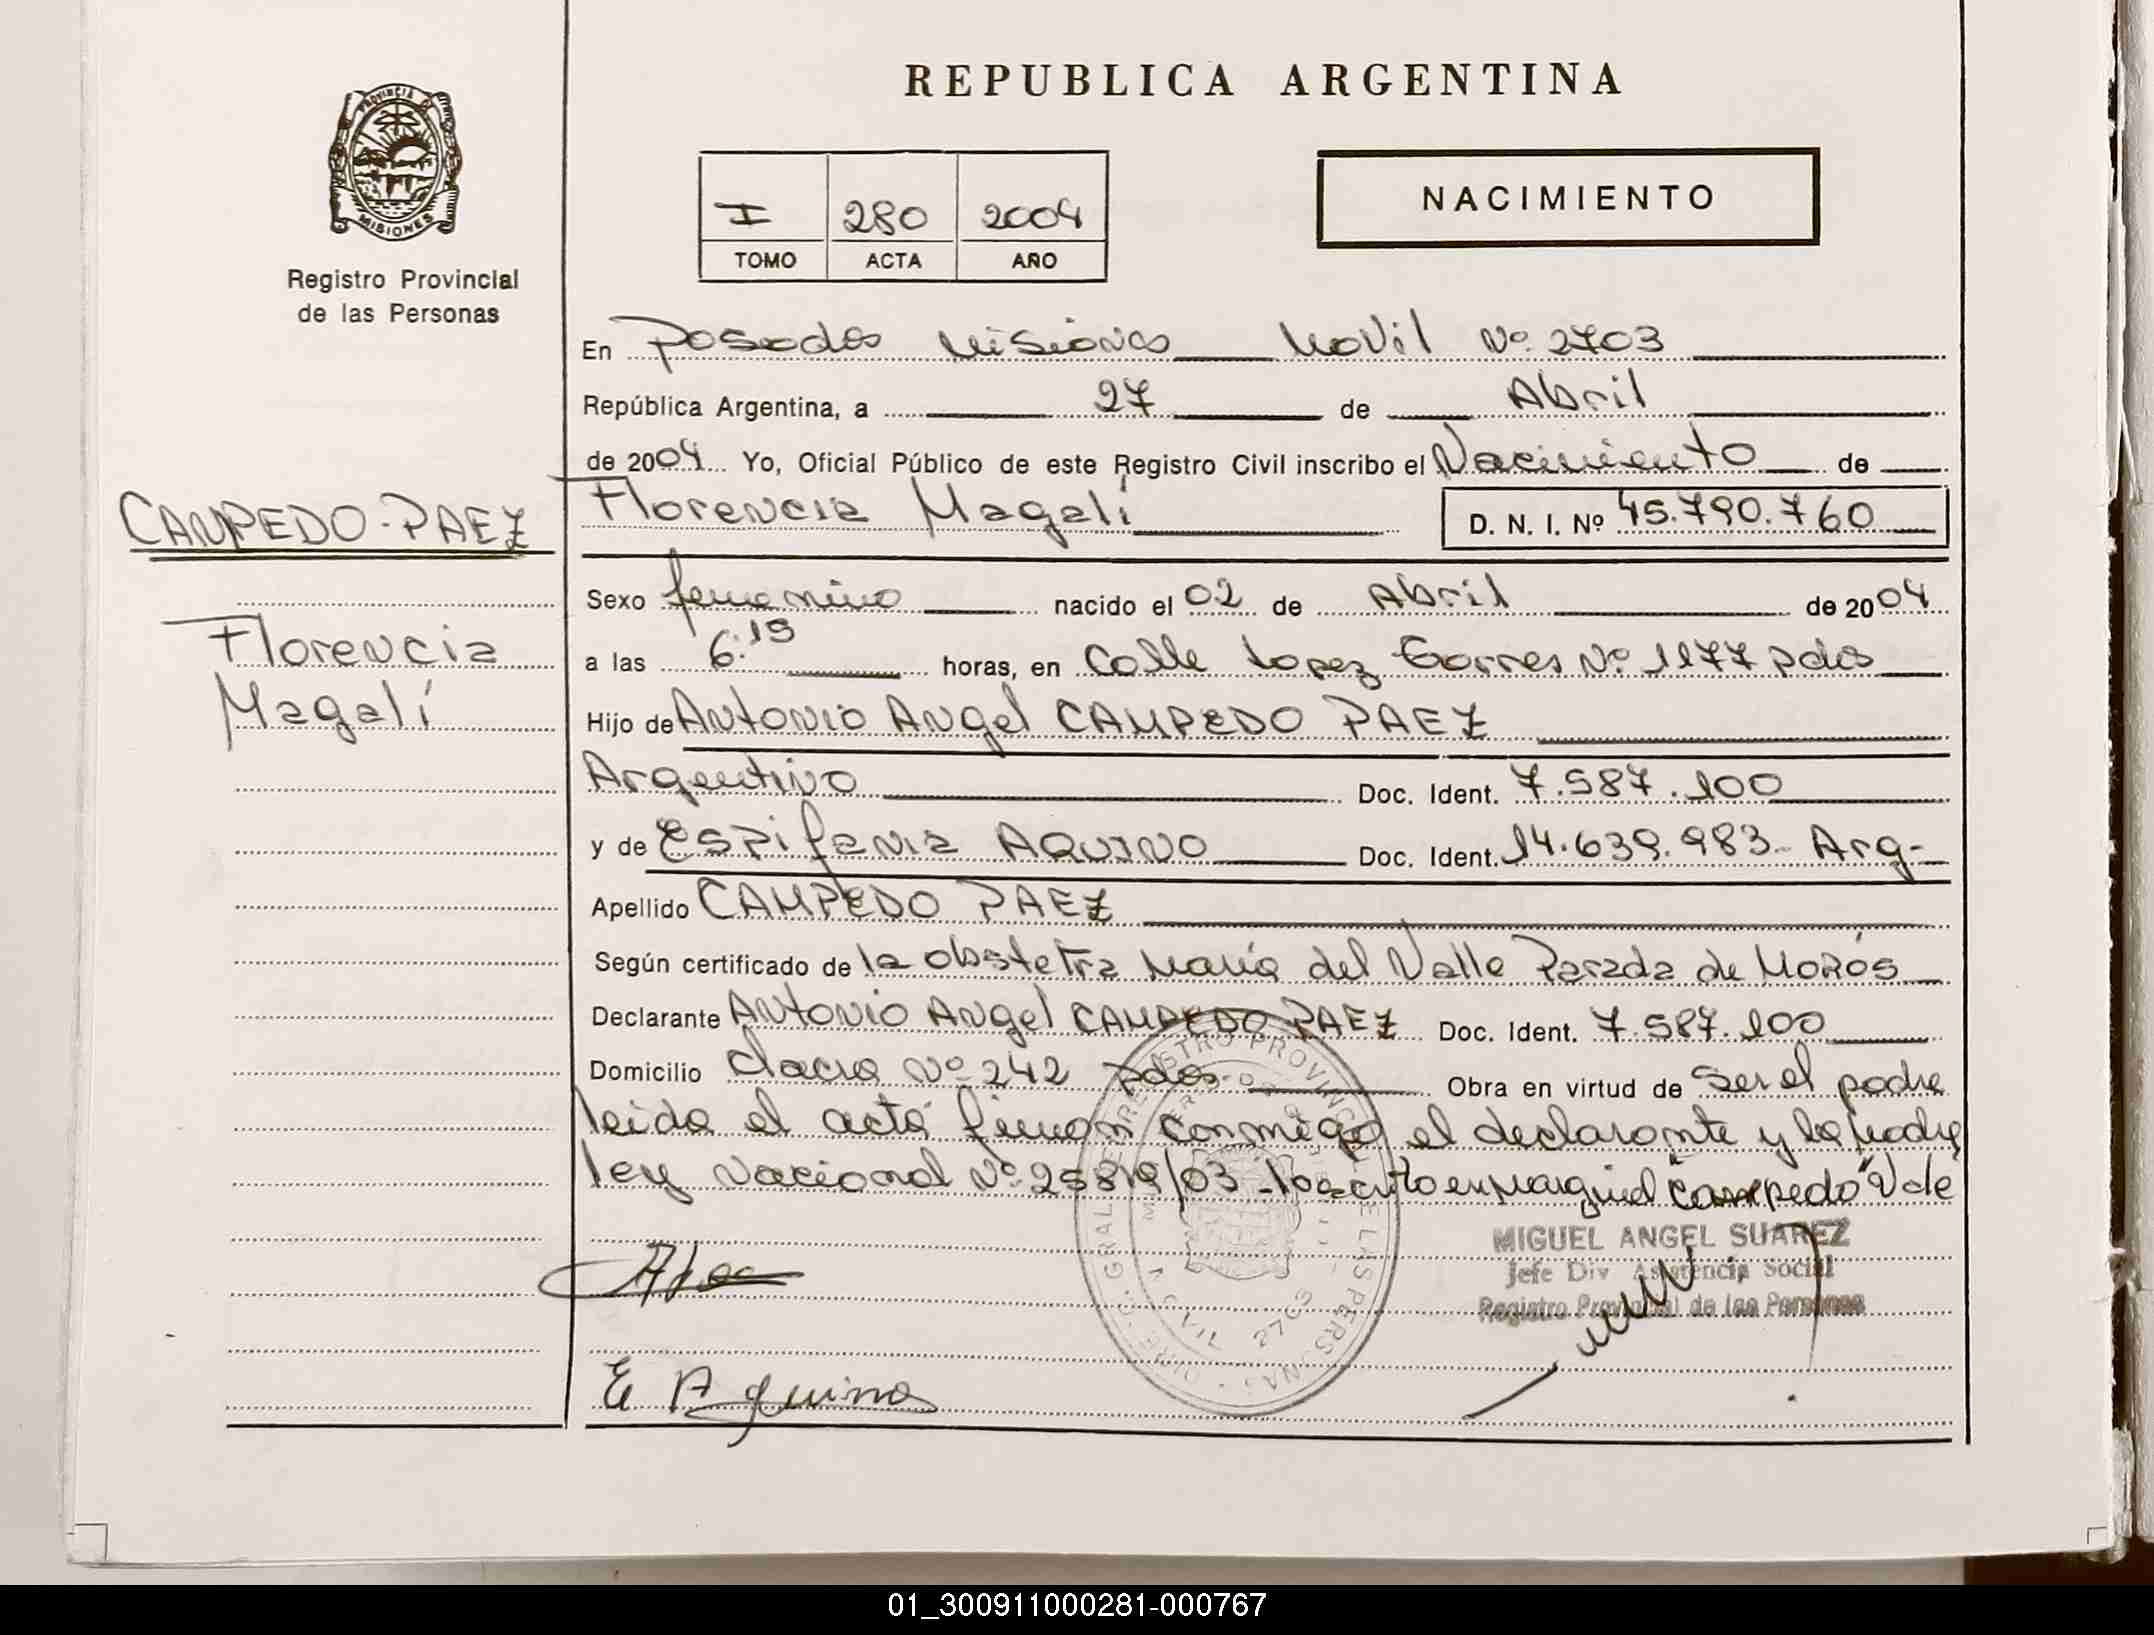 REPUBLICA ARGENTINA
PROVINCIA D
MISIONES
Registro Provincial
de las Personas
NACIMIENTO
I 280 2004
TOMO ACTA AÑO
En Posadas Misiones Movil Nº 2703
República Argentina, a 27 de Abril
de 2004 Yo, Oficial Público de este Registro Civil inscribo el Nacimiento de
CAMPEDO-PAEZ
Florencia Magalí D. N. I. Nº 45.790.760
Sexo femenino nacido el 02 de Abril de 2004
Florencia
Magalí
a las 6:15 horas, en Calle Lopez Torres Nº 1177 pdas
Hijo de Antonio Angel CAMPEDO PAEZ
Argentino Doc. Ident. 7.587.100
y de Espifania AQUINO Doc. Ident. 14.639.983- Arg-
Apellido CAMPEDO PAEZ
Según certificado de la obstetra María del Valle Parada de MORÓS
Declarante Antonio Angel CAMPEDO PAEZ Doc. Ident. 7.587.100
Domicilio chacra Nº 242 pdas- Obra en virtud de Ser el padre
leida el acta firman conmigo el declarante y la madre
ley Nacional Nº 25819/03 - lo escrito en marginal "Campedo" Vale
MIGUEL ANGEL SUAREZ
Jefe Div Asistencia Social
Registro Provincial de las Personas
2703
E Aquino
01_300911000281-000767